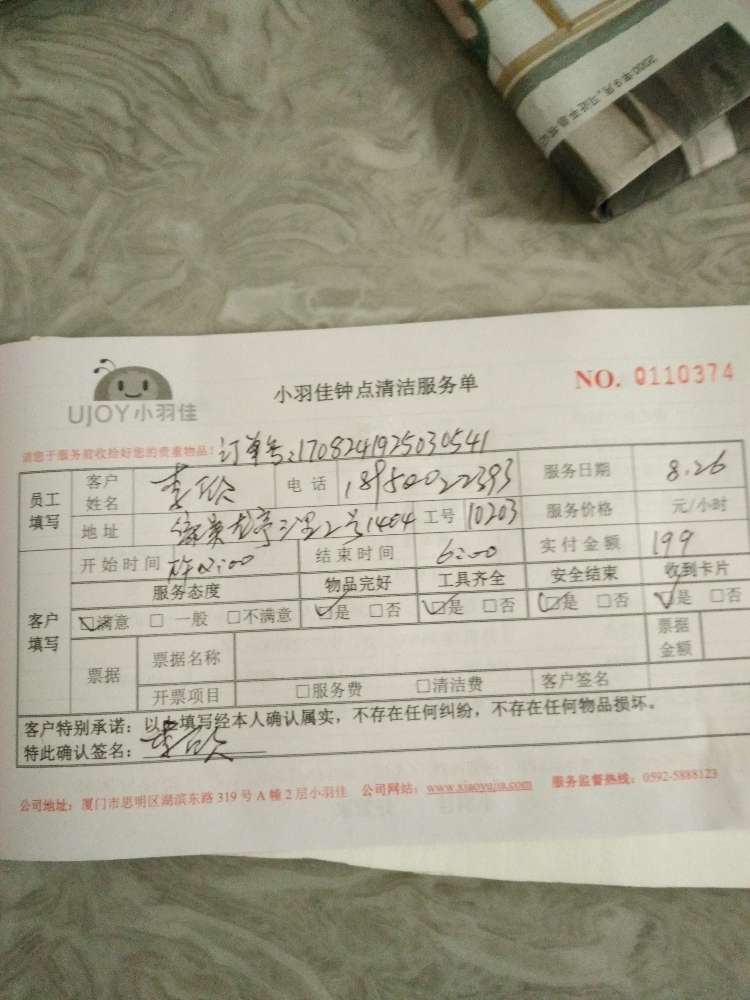 UJOY小羽佳
小羽佳钟点清洁服务单
NO. 0110374
请您于服务前收拾好您的贵重物品!
订单号:1708241925030541
员工填写 客户姓名 李 电话 18950022393 服务日期 8.26
地址 2号1404 工号 10203 服务价格 元/小时
客户填写 开始时间 2:00 结束时间 6:00 实付金额 199
服务态度 物品完好 工具齐全 安全结束 收到卡片
☑满意 □一般 □不满意 ☑是 □否 ☑是 □否 ☑是 □否 ☑是 □否
票据 票据名称 票据金额
开票项目 □服务费 □清洁费 客户签名
客户特别承诺:以上填写经本人确认属实,不存在任何纠纷,不存在任何物品损坏。
特此确认签名:李
公司地址:厦门市思明区湖滨东路319号A幢2层小羽佳 公司网站:www.xiaoyujia.com 服务监督热线:0592-5888123